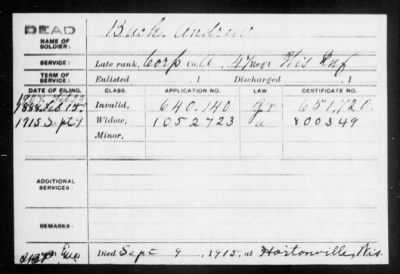 DEAD
NAME OF SOLDIER: Buck, Andrew
SERVICE: Late rank, Corp Co. A, 47 Reg't Wis Inf
TERM OF SERVICE: Enlisted , 1 Discharged , 1
DATE OF FILING. CLASS. APPLICATION NO. LAW CERTIFICATE NO.
1888 Feb 15. Invalid, 640.140 651.720.
1915 Sept 9 Widow, 1052723 a 800349
Minor,
ADDITIONAL SERVICES:
REMARKS:
Died Sept 9, 1915, at Hortonville, Wis.